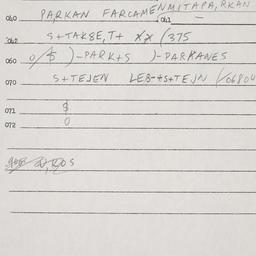 060 PARKAN FARCAMENMITAPA, RKAN
062
062 S+TAKSE, T+ XX (375
060 0/$ )-PARK+S )-PARKANES
070 S+TEJEN LEB-+S+TEJN (06804
071 $
072 0